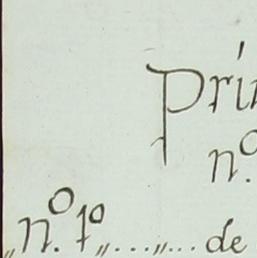 Prin
n.º
„n.º 1º„...„... de